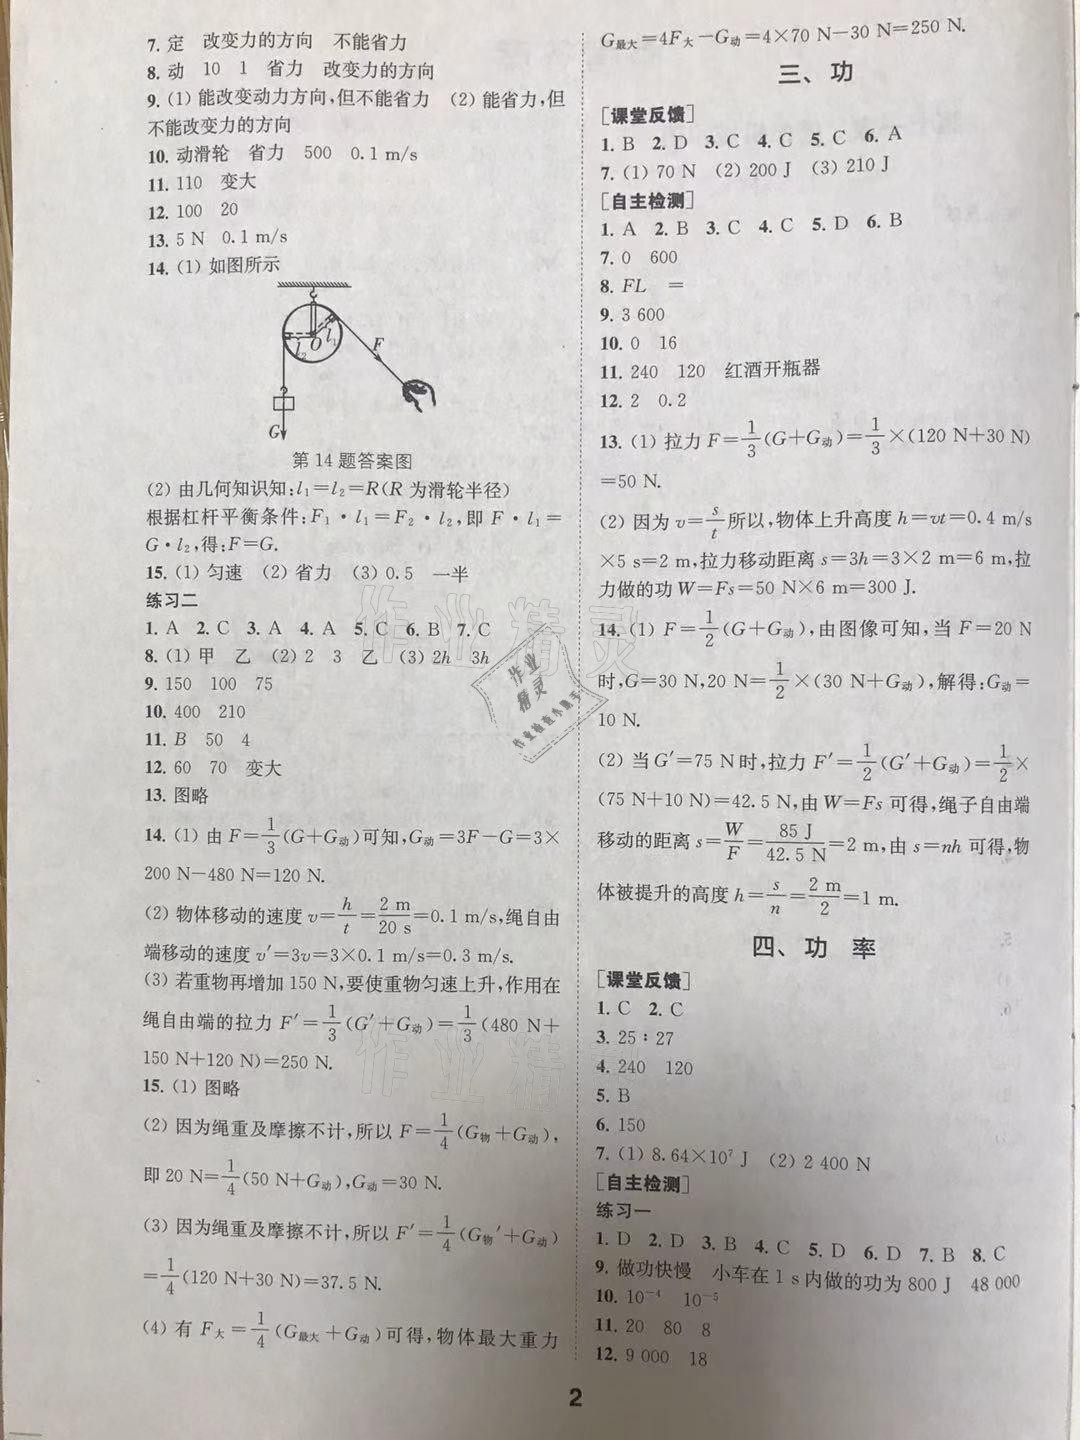 7. 定　改变力的方向　不能省力
8. 动　10　1　省力　改变力的方向
9. (1) 能改变动力方向,但不能省力　(2) 能省力,但
不能改变力的方向
10. 动滑轮　省力　500　0.1 m/s
11. 110　变大
12. 100　20
13. 5 N　0.1 m/s
14. (1) 如图所示
O l₁
l₂ F
G
第 14 题答案图
(2) 由几何知识知:l₁=l₂=R(R 为滑轮半径)
根据杠杆平衡条件:F₁·l₁=F₂·l₂,即 F·l₁=
G·l₂,得:F=G.
15. (1) 匀速　(2) 省力　(3) 0.5　一半
练习二
1. A　2. C　3. A　4. A　5. C　6. B　7. C
8. (1) 甲　乙　(2) 2　3　乙　(3) 2h　3h
9. 150　100　75
10. 400　210
11. B　50　4
12. 60　70　变大
13. 图略
14. (1) 由 F=1/3(G+G动)可知,G动=3F-G=3×
200 N-480 N=120 N.
(2) 物体移动的速度 v=h/t=2 m/20 s=0.1 m/s,绳自由
端移动的速度 v′=3v=3×0.1 m/s=0.3 m/s.
(3) 若重物再增加 150 N,要使重物匀速上升,作用在
绳自由端的拉力 F′=1/3(G′+G动)=1/3(480 N+
150 N+120 N)=250 N.
15. (1) 图略
(2) 因为绳重及摩擦不计,所以 F=1/4(G物+G动),
即 20 N=1/4(50 N+G动),G动=30 N.
(3) 因为绳重及摩擦不计,所以 F′=1/4(G物′+G动)
=1/4(120 N+30 N)=37.5 N.
(4) 有 F大=1/4(G最大+G动)可得,物体最大重力
G最大=4F大-G动=4×70 N-30 N=250 N.
三、功
[课堂反馈]
1. B　2. D　3. C　4. C　5. C　6. A
7. (1) 70 N　(2) 200 J　(3) 210 J
[自主检测]
1. A　2. B　3. C　4. C　5. D　6. B
7. 0　600
8. FL　=
9. 3 600
10. 0　16
11. 240　120　红酒开瓶器
12. 2　0.2
13. (1) 拉力 F=1/3(G+G动)=1/3×(120 N+30 N)
=50 N.
(2) 因为 v=s/t所以,物体上升高度 h=vt=0.4 m/s
×5 s=2 m,拉力移动距离 s=3h=3×2 m=6 m,拉
力做的功 W=Fs=50 N×6 m=300 J.
14. (1) F=1/2(G+G动),由图像可知,当 F=20 N
时,G=30 N,20 N=1/2×(30 N+G动),解得:G动=
10 N.
(2) 当 G′=75 N 时,拉力 F′=1/2(G′+G动)=1/2×
(75 N+10 N)=42.5 N,由 W=Fs 可得,绳子自由端
移动的距离 s=W/F=85 J/42.5 N=2 m,由 s=nh 可得,物
体被提升的高度 h=s/n=2 m/2=1 m.
四、功　率
[课堂反馈]
1. C　2. C
3. 25∶27
4. 240　120
5. B
6. 150
7. (1) 8.64×10⁷ J　(2) 2 400 N
[自主检测]
练习一
1. D　2. D　3. B　4. C　5. D　6. D　7. B　8. C
9. 做功快慢　小车在 1 s 内做的功为 800 J　48 000
10. 10⁻⁴　10⁻⁵
11. 20　80　8
12. 9 000　18
2
作业精灵
作业精灵
作业精